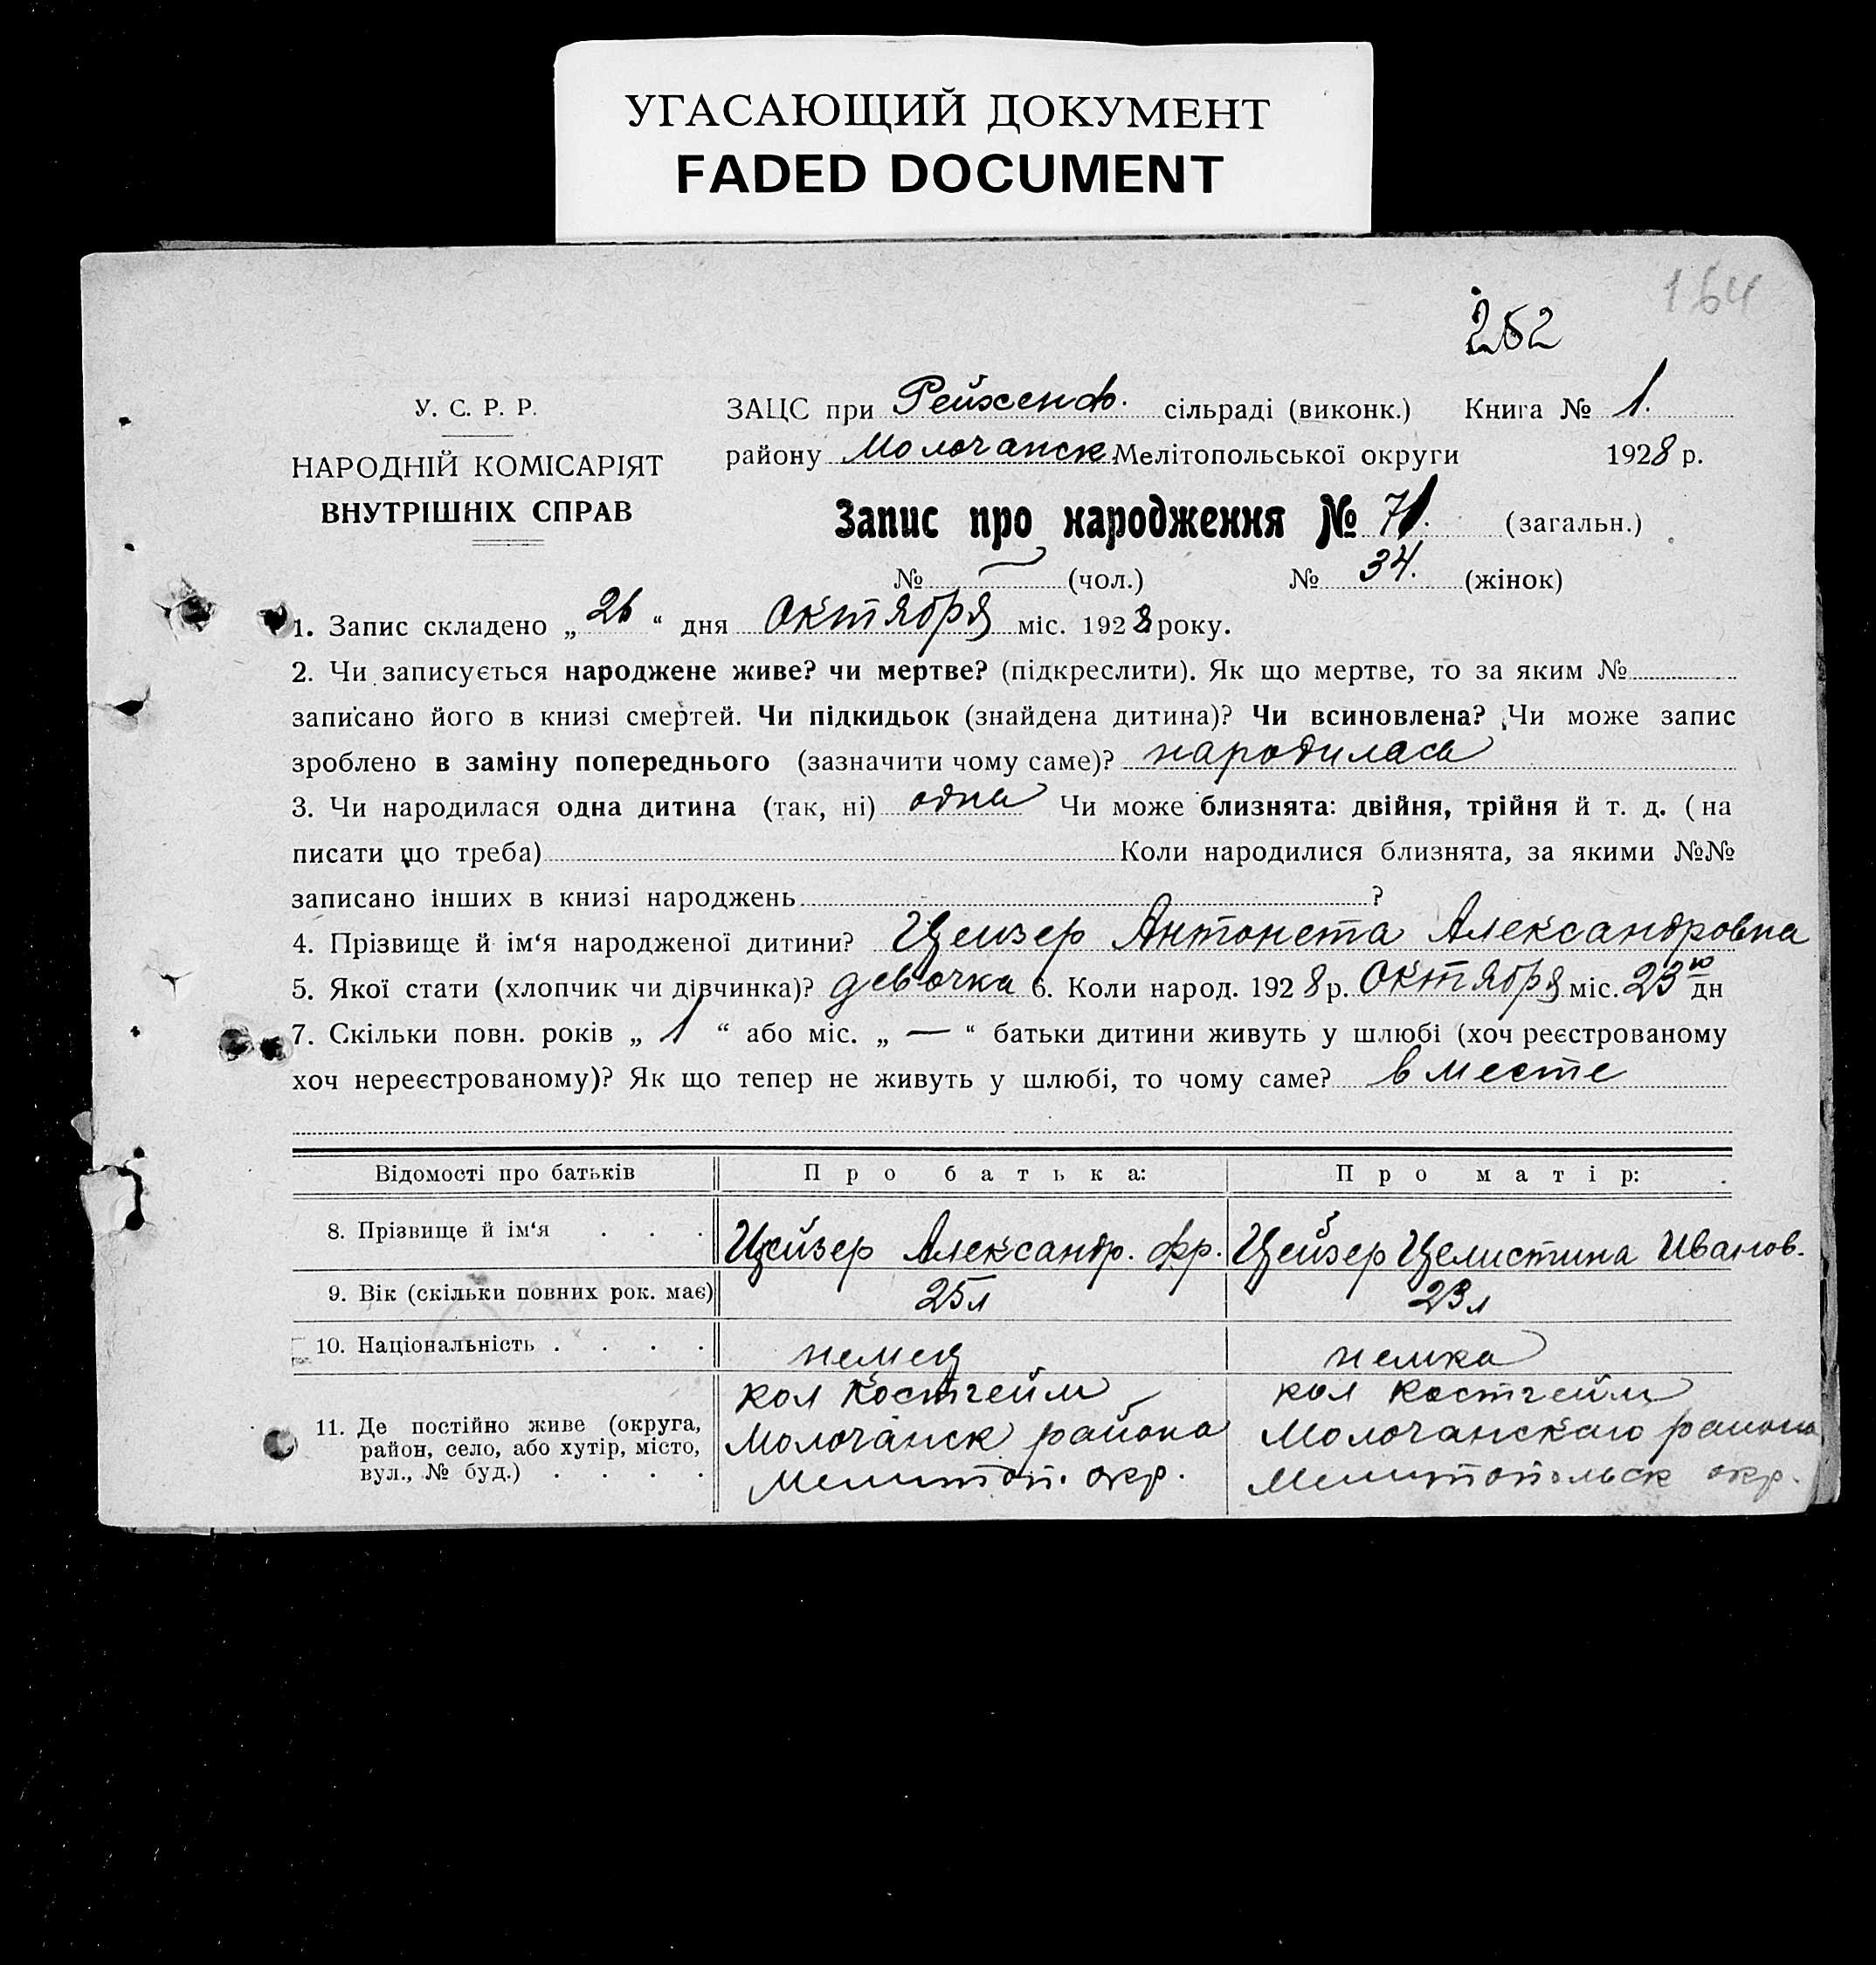 УГАСАЮЩИЙ ДОКУМЕНТ
FADED DOCUMENT
164
252
У. С. Р. Р.
НАРОДНІЙ КОМІСАРІЯТ
ВНУТРІШНІХ СПРАВ
ЗАЦС при Рейхенф. сільраді (виконк.) Книга № 1.
району Молочанск Мелітопольської округи 1928 р.
Запис про народження № 71. (загальн.)
№ — (чол.) № 34. (жінок)
1. Запис складено „ 26 “ дня Октября міс. 1928 року.
2. Чи записується народжене живе? чи мертве? (підкреслити). Як що мертве, то за яким №
записано його в книзі смертей. Чи підкидьок (знайдена дитина)? Чи всиновлена? Чи може запис
зроблено в заміну попереднього (зазначити чому саме)? народилась
3. Чи народилася одна дитина (так, ні) одна Чи може близнята: двійня, трійня й т. д. (на
писати що треба) Коли народилися близнята, за якими №№
записано інших в книзі народжень ?
4. Прізвище й ім‘я народженої дитини? Цейзер Антонета Александровна
5. Якої стати (хлопчик чи дівчинка)? девочка 6. Коли народ. 1928 р. Октября міс. 23 го дн
7. Скільки повн. років „ 1 “ або міс. „ — “ батьки дитини живуть у шлюбі (хоч реєстрованому
хоч нереєстрованому)? Як що тепер не живуть у шлюбі, то чому саме? вместе
Відомості про батьків Про батька: Про матір:
8. Прізвище й ім‘я . . . Цейзер Александр. Фр. Цейзер Целистина Иванов.
9. Вік (скільки повних рок. має) 25 л 23 л
10. Національність . . . . немец немка
11. Де постійно живе (округа, район, село, або хутір, місто, вул., № буд.) . . . . кол Костгейм кол Костгейм
Молочанск района Молочанскаго района
Мелитоп. окр. Мелитопольск окр.